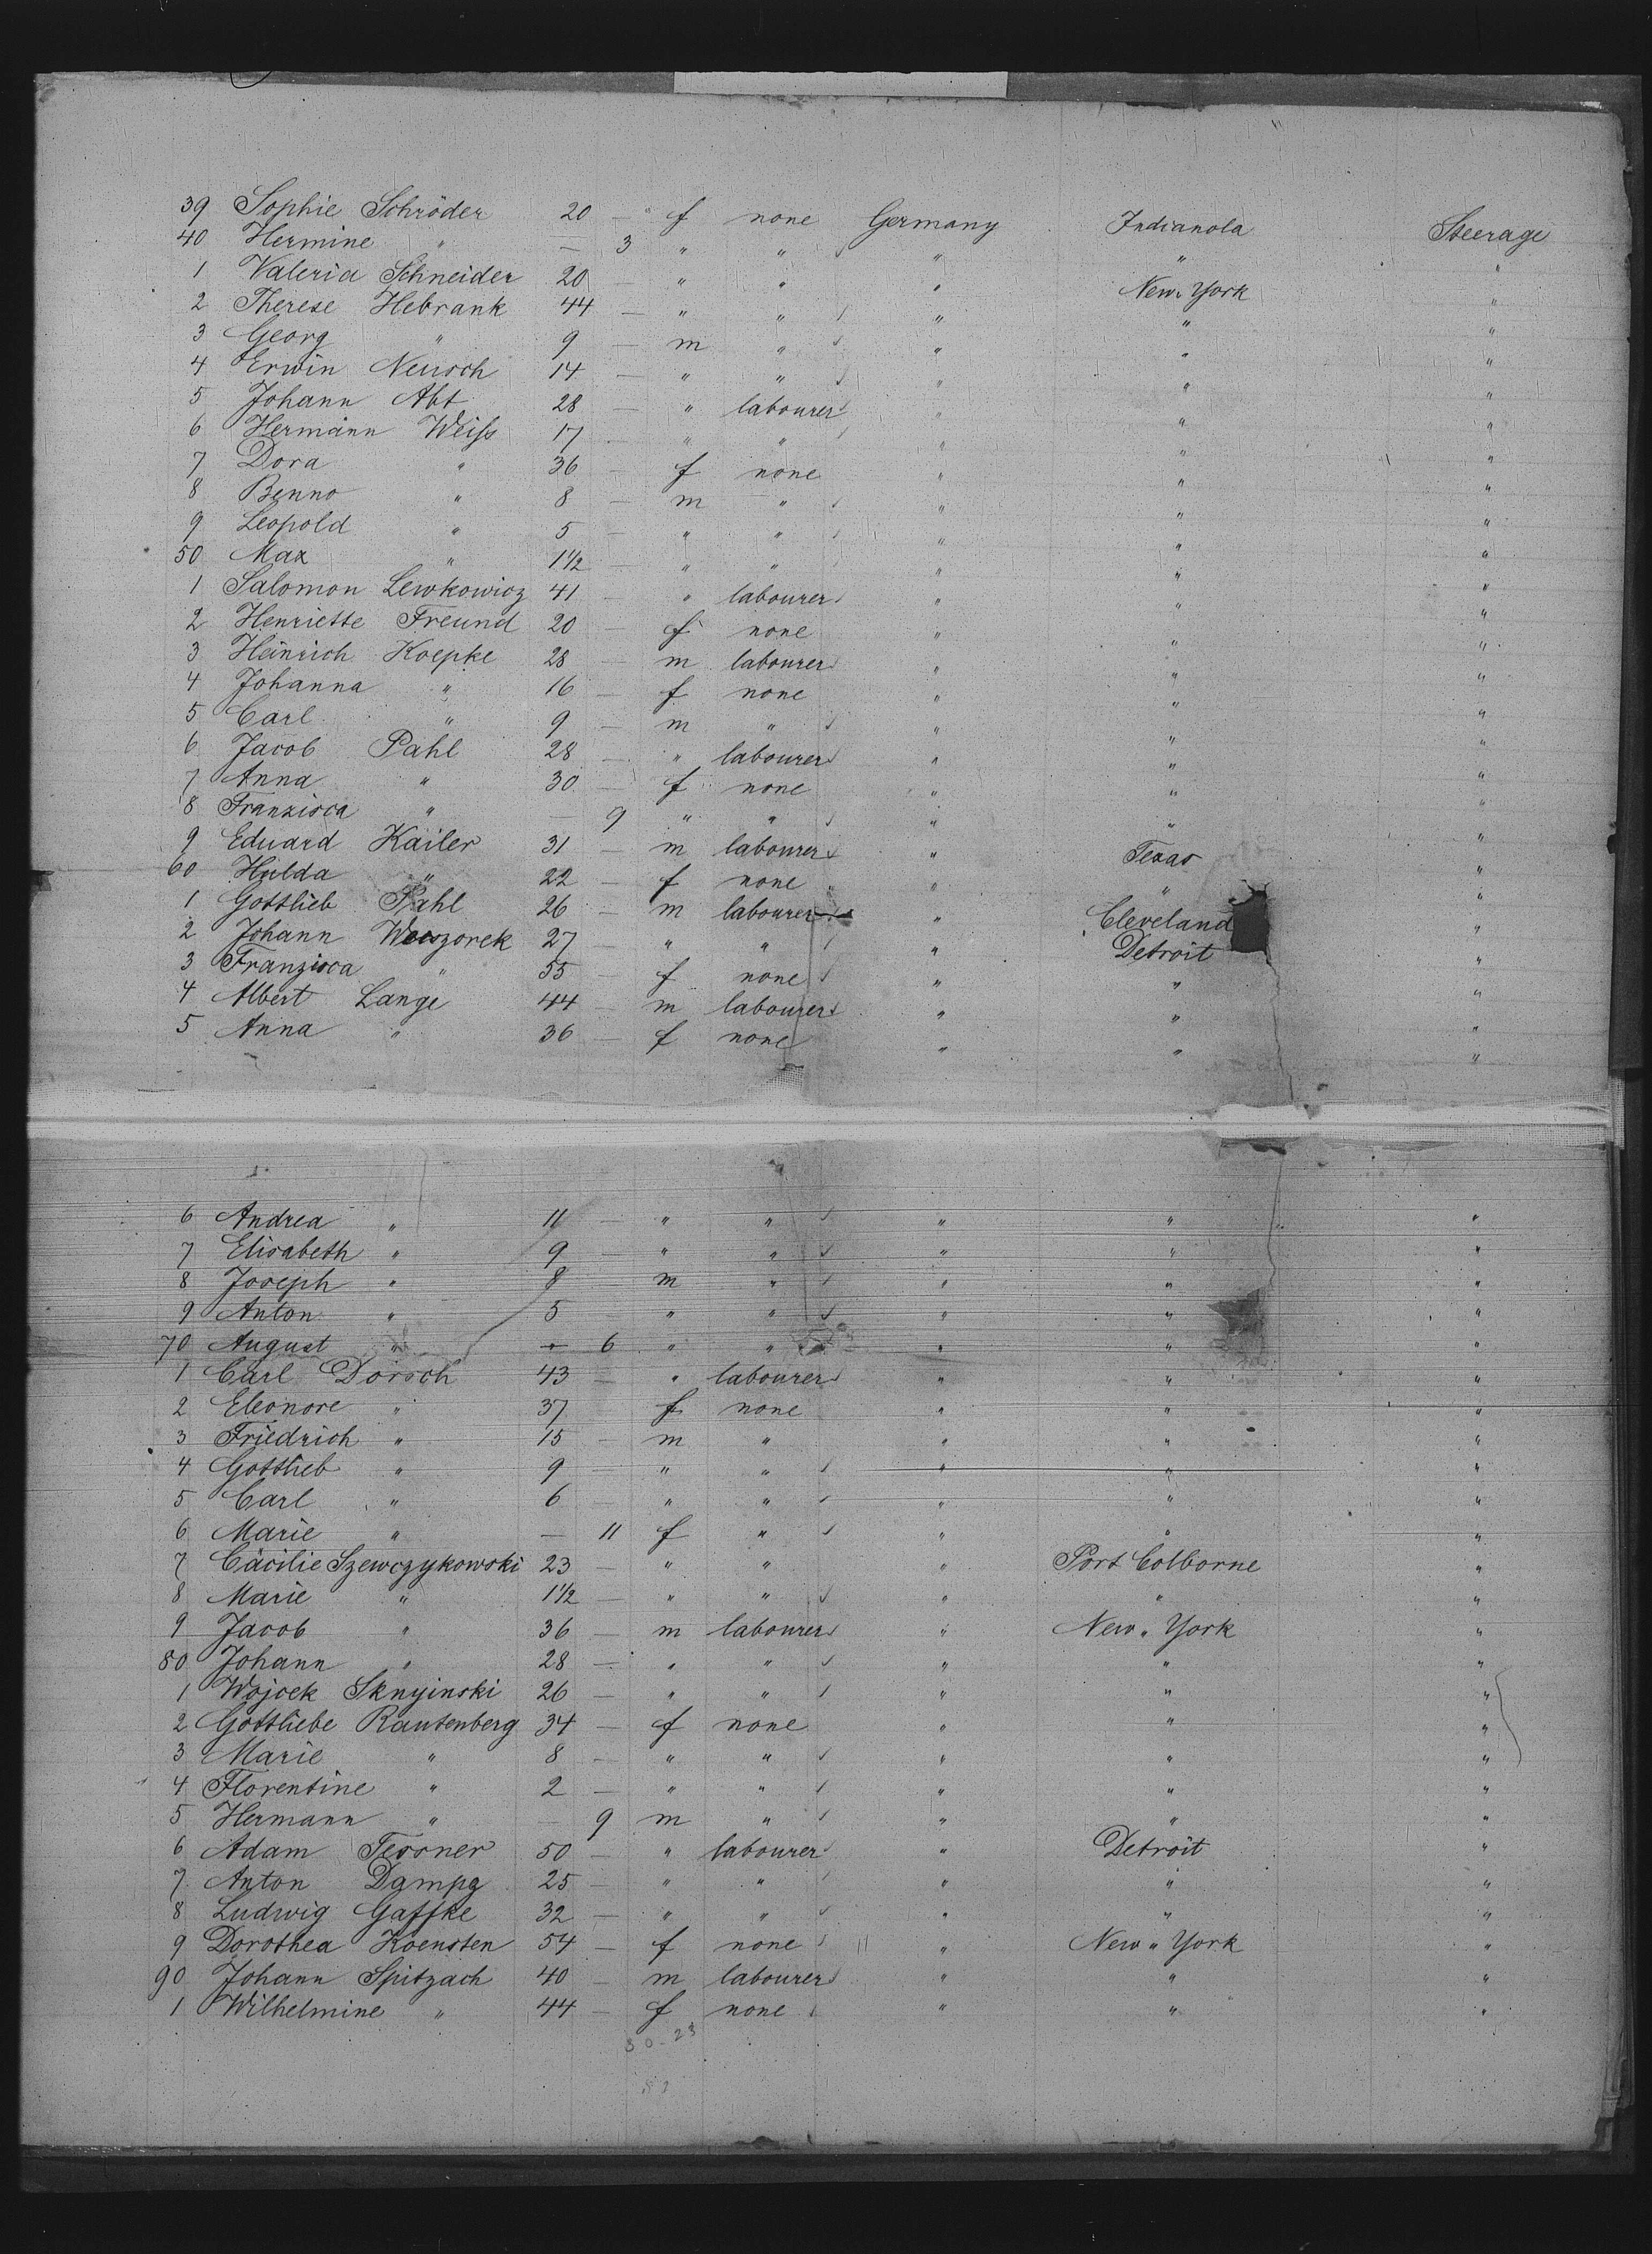 39 Sophie Schröder 20 — f none Germany Indianola Steerage
40 Hermine " — 3 " " " " "
1 Valeria Schneider 20 — " " " New York "
2 Therese Hebrank 44 — " " " " "
3 Georg " 9 — m " " " "
4 Erwin Neusch 14 — " " " " "
5 Johann Abt 28 — " labourer " " "
6 Hermann Weiss 17 — " " " " "
7 Dora " 36 — f none " " "
8 Benno " 8 — m " " " "
9 Leopold " 5 — " " " " "
50 Max " 1½ — " " " " "
1 Salomon Lewkowicz 41 — " labourer " " "
2 Henriette Freund 20 — f none " " "
3 Heinrich Koepke 28 — m labourer " " "
4 Johanna " 16 — f none " " "
5 Carl " 9 — m " " " "
6 Jacob Pahl 28 — " labourer " " "
7 Anna " 30 — f none " " "
8 Franzisca " — 9 " " " " "
9 Eduard Kailer 31 — m labourer " Texas "
60 Hulda " 22 — f none " " "
1 Gottlieb Pahl 26 — m labourer " Cleveland "
2 Johann 27 — " " " Detroit "
3 Franzisca " 55 — f none " " "
4 Albert Lange 44 — m labourer " " "
5 Anna " 36 — f none " " "
6 Andrea " 11 — " " " " "
7 Elisabeth " 9 — " " " " "
8 Joseph " 8 m " " " "
9 Anton " 5 " " " " "
70 August " — 6 " " " " "
1 Carl Dorsch 43 — " labourer " " "
2 Eleonore " 37 f none " " "
3 Friedrich " 15 — m " " " "
4 Gottlieb " 9 — " " " " "
5 Carl " 6 " " " " "
6 Marie " — 11 f " " " "
7 Cäcilie Szewczykowski 23 — " " " Port Colborne "
8 Marie " 1½ — " " " " "
9 Jacob " 36 — m labourer " New York "
80 Johann " 28 — " " " " "
1 Wojcek Sknyinski 26 — " " " " "
2 Gottliebe Rautenberg 34 — f none " " "
3 Marie " 8 — " " " " "
4 Florentine " 2 — " " " " "
5 Hermann " — 9 m " " " "
6 Adam Tessner 50 — " labourer " Detroit "
7 Anton 25 — " " " " "
8 Ludwig Gaffke 32 — " " " " "
9 Dorothea Koensten 54 — f none " New York "
90 Johann Spitzach 40 — m labourer " " "
1 Wilhelmine " 44 — f none " " "
30-23